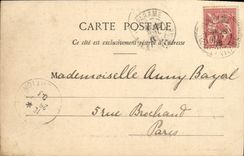 CARTE POSTALE
Ce côté est exclusivement réservé à l'adresse
Mademoiselle Anny Bayol
5 rue Brochand
Paris